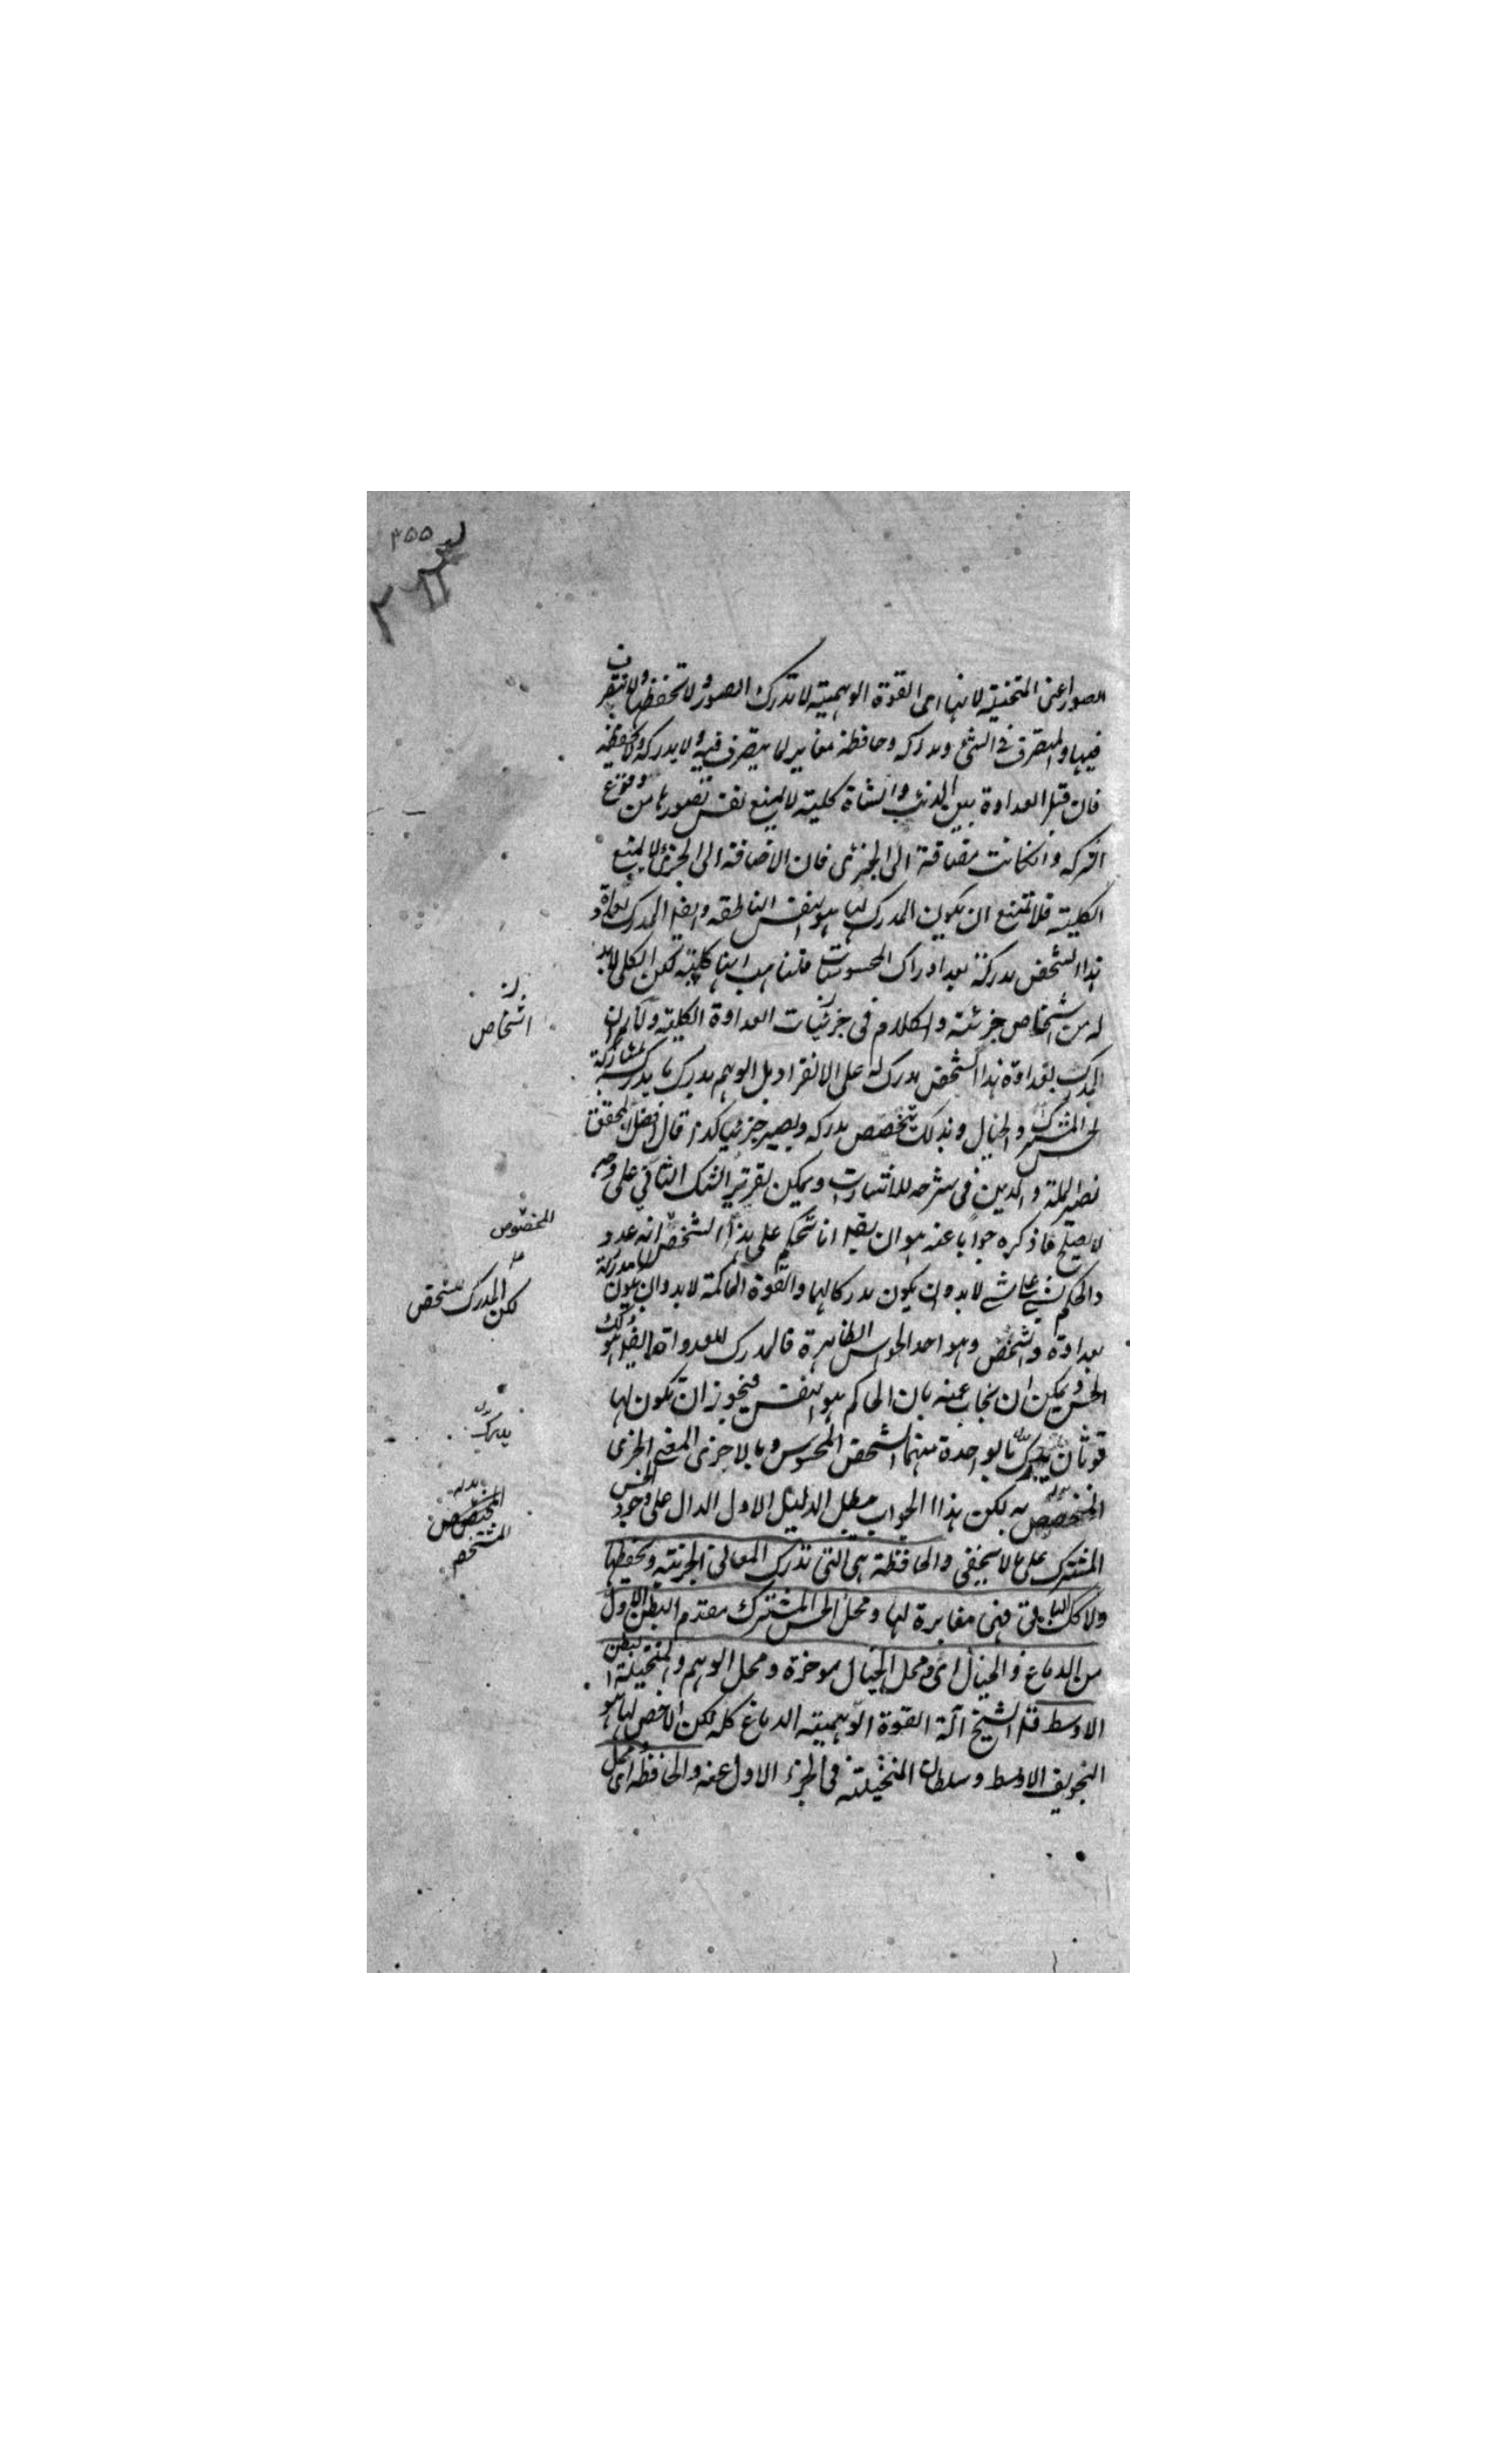 ٣٥٥
الصور اعنى المتخيلة لانها اى القوة الوهمية لا تدرك الصور ولا تحفظها ولا تتصرف
فيها والمتصرف فى الشئ ومدركه وحافظه مغاير لما يتصرف فيه ولا يدركه ولا يحفظه
فان قيل العداوة بين الذئب والشاة كلية لا يمنع نفس تصورها من وقوع
الشركه وان كانت مضافة الى الجزئى فان الاضافة الى الجزئى لا يمنع
الكلية فلا تمتنع ان يكون المدرك لها هو النفس الناطقه وايضا المدرك لعداوة
هذا الشخص مدركة بعد ادراك المحسوسات قلنا هب انها كلية لكن الكلى لابد
له من اشخاص جزئية والكلام فى جزئيات العداوة الكلية ولا نم ان
المدرك لعداوة هذا الشخص مدرك له على الانفراد بل الوهم يدرك ما يدرك بمشاركة
الحس المشترك والخيال وبذلك يتخصص مدركه ويصير جزئيا كذا قال افضل المحقق
نصير الملة والدين فى شرحه للاشارات ويمكن تقرير الشك الثانى على وجه
لا يصلح ما ذكره جوابا عنه هو ان يقال انا نحكم على هذا الشخص انه عدو
والحاكم بشئ على شئ لابد وان يكون مدركا لهما والقوة الحاكمة لابد وان يكون مدركة
بعداوة والشخص وهو احد الحواس الظاهرة فالمدرك للعداوة ايضا هو ذلك
الحس ويمكن ان يجاب عنه بان الحاكم هو النفس فيجوز ان تكون لها
قوتان يدرك بالواحدة منهما الشخص المحسوس وبالاخرى المعنى الجزئى
المخصص به لكن هذا الجواب يبطل الدليل الاول الدال على وجود الحس
المشترك على ما لا يخفى والحافظة هى التى تدرك المعانى الجزئية وتحفظها
ولا كك الباقى فهى مغايرة لها ومحل الحس المشترك مقدم البطن الاول
من الدماغ والخيال اى ومحل الخيال موخرة ومحل الوهم والمتخيلة البطن
الاوسط قال الشيخ آلة القوة الوهمية الدماغ كله لكن الاخص لها هو
التجويف الاوسط وسلطان المتخيلة فى الجزء الاول عنه والحافظة اى محل
اشخاص
المخصوص
لكن المدرك للشخص
يدرك
المختصص
المتشخص